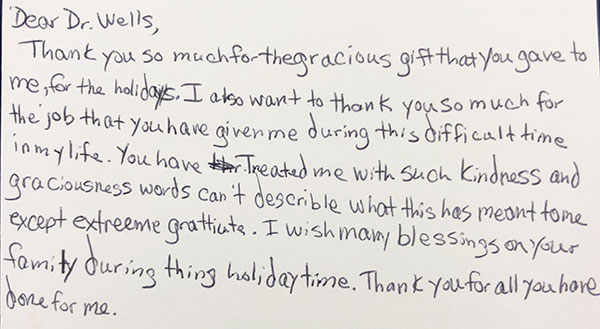 Dear Dr. Wells,
Thank you so much for the gracious gift that you gave to
me, for the holidays. I also want to thank you so much for
the job that you have given me during this difficult time
in my life. You have Treated me with such kindness and
graciousness words can't describle what this has meant to me
except extreeme grattiute. I wish many blessings on your
family during thing holiday time. Thank you for all you have
done for me.